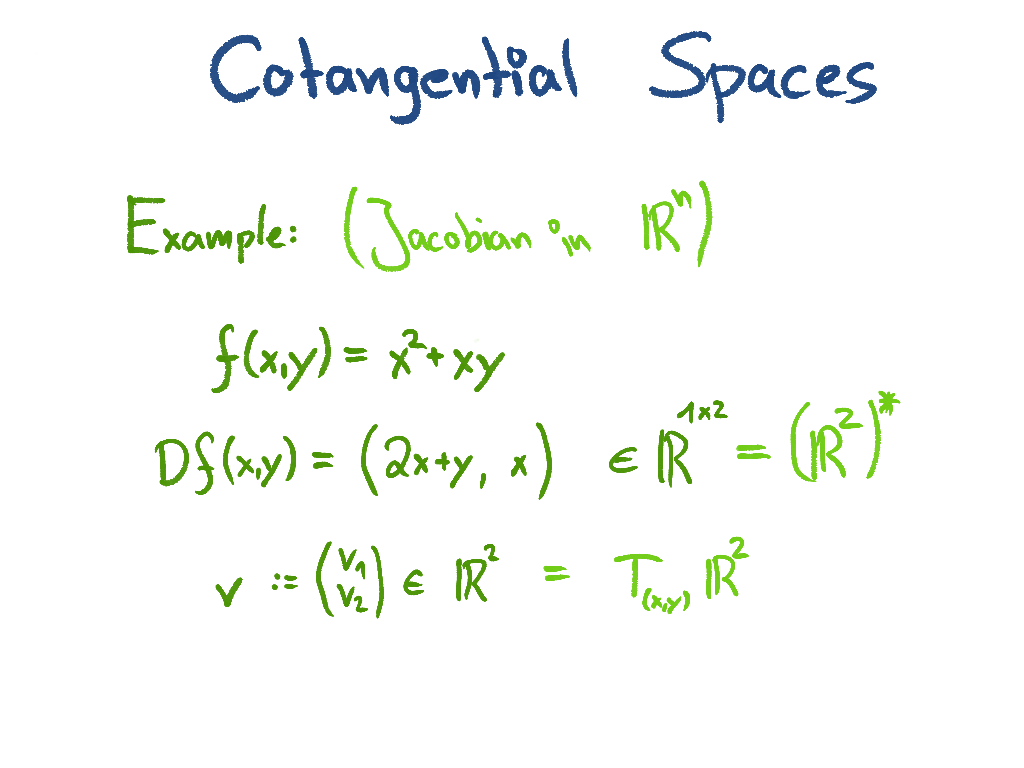 Cotangential Spaces
Example: (Jacobian in ℝⁿ)
f(x,y) = x² + xy
Df(x,y) = (2x+y, x) ∈ ℝ¹ˣ² = (ℝ²)*
v := (v₁ v₂) ∈ ℝ² = T₍ₓ,ᵧ₎ ℝ²